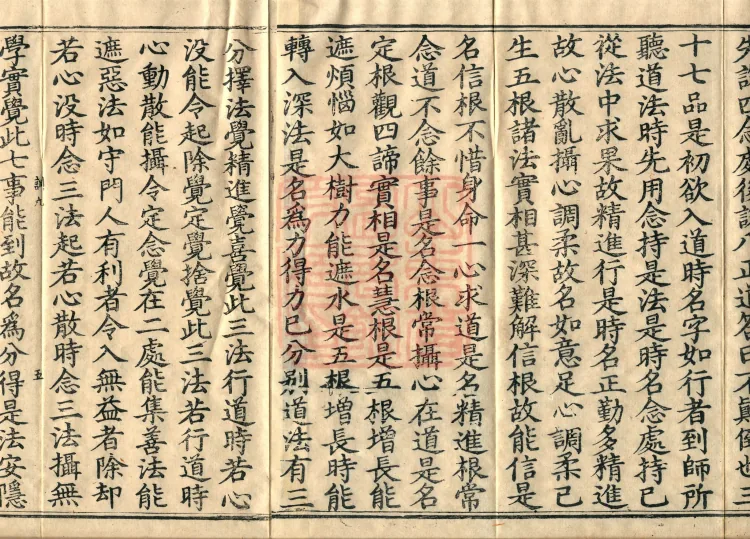 十七品是初欲入道時名字如行者到師所
聽道法時先用念持是法是時名念處持已
從法中求果故精進行是時名正勤多精進
故心散亂攝心調柔故名如意足心調柔已
生五根諸法實相甚深難解信根故能信是
名信根不惜身命一心求道是名精進根常
念道不念餘事是名念根常攝心在道是名
定根觀四諦實相是名慧根是五根增長能
遮煩惱如大樹力能遮水是五根增長時能
轉入深法是名為力得力已分別道法有三
分擇法覺精進覺喜覺此三法行道時若心
没能令起除覺定覺捨覺此三法若行道時
心動散能攝令定念覺在二處能集善法能
遮惡法如守門人有利者令入無益者除却
若心没時念三法起若心散時念三法攝無
學實覺此七事能到故名為分得是法安隱
五